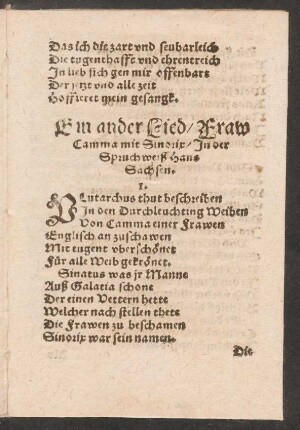 Das ich die zart vnd seubarleich
Die tugenthafft vnd ehrentreich
In lieb sich gen mir offenbart
Der jtzt vnd alle zeit
Hoffieret mein gesangk.
Ein ander Lied / Fraw
Camma mit Sinorix / In der
Spruchweiß Hans
Sachsen.
1.
PLutarchus thut beschreiben
In den Durchleuchting Weiben
Von Camma einer Frawen
Englisch an zuschawen
Mit tugent vberschönet
Für alle Weib gekrönet.
Sinatus was jr Manne
Auß Galatia schone
Der einen Vettern hette
Welcher nach stellen thete
Die Frawen zu beschamen
Sinorix war sein namen.
Die